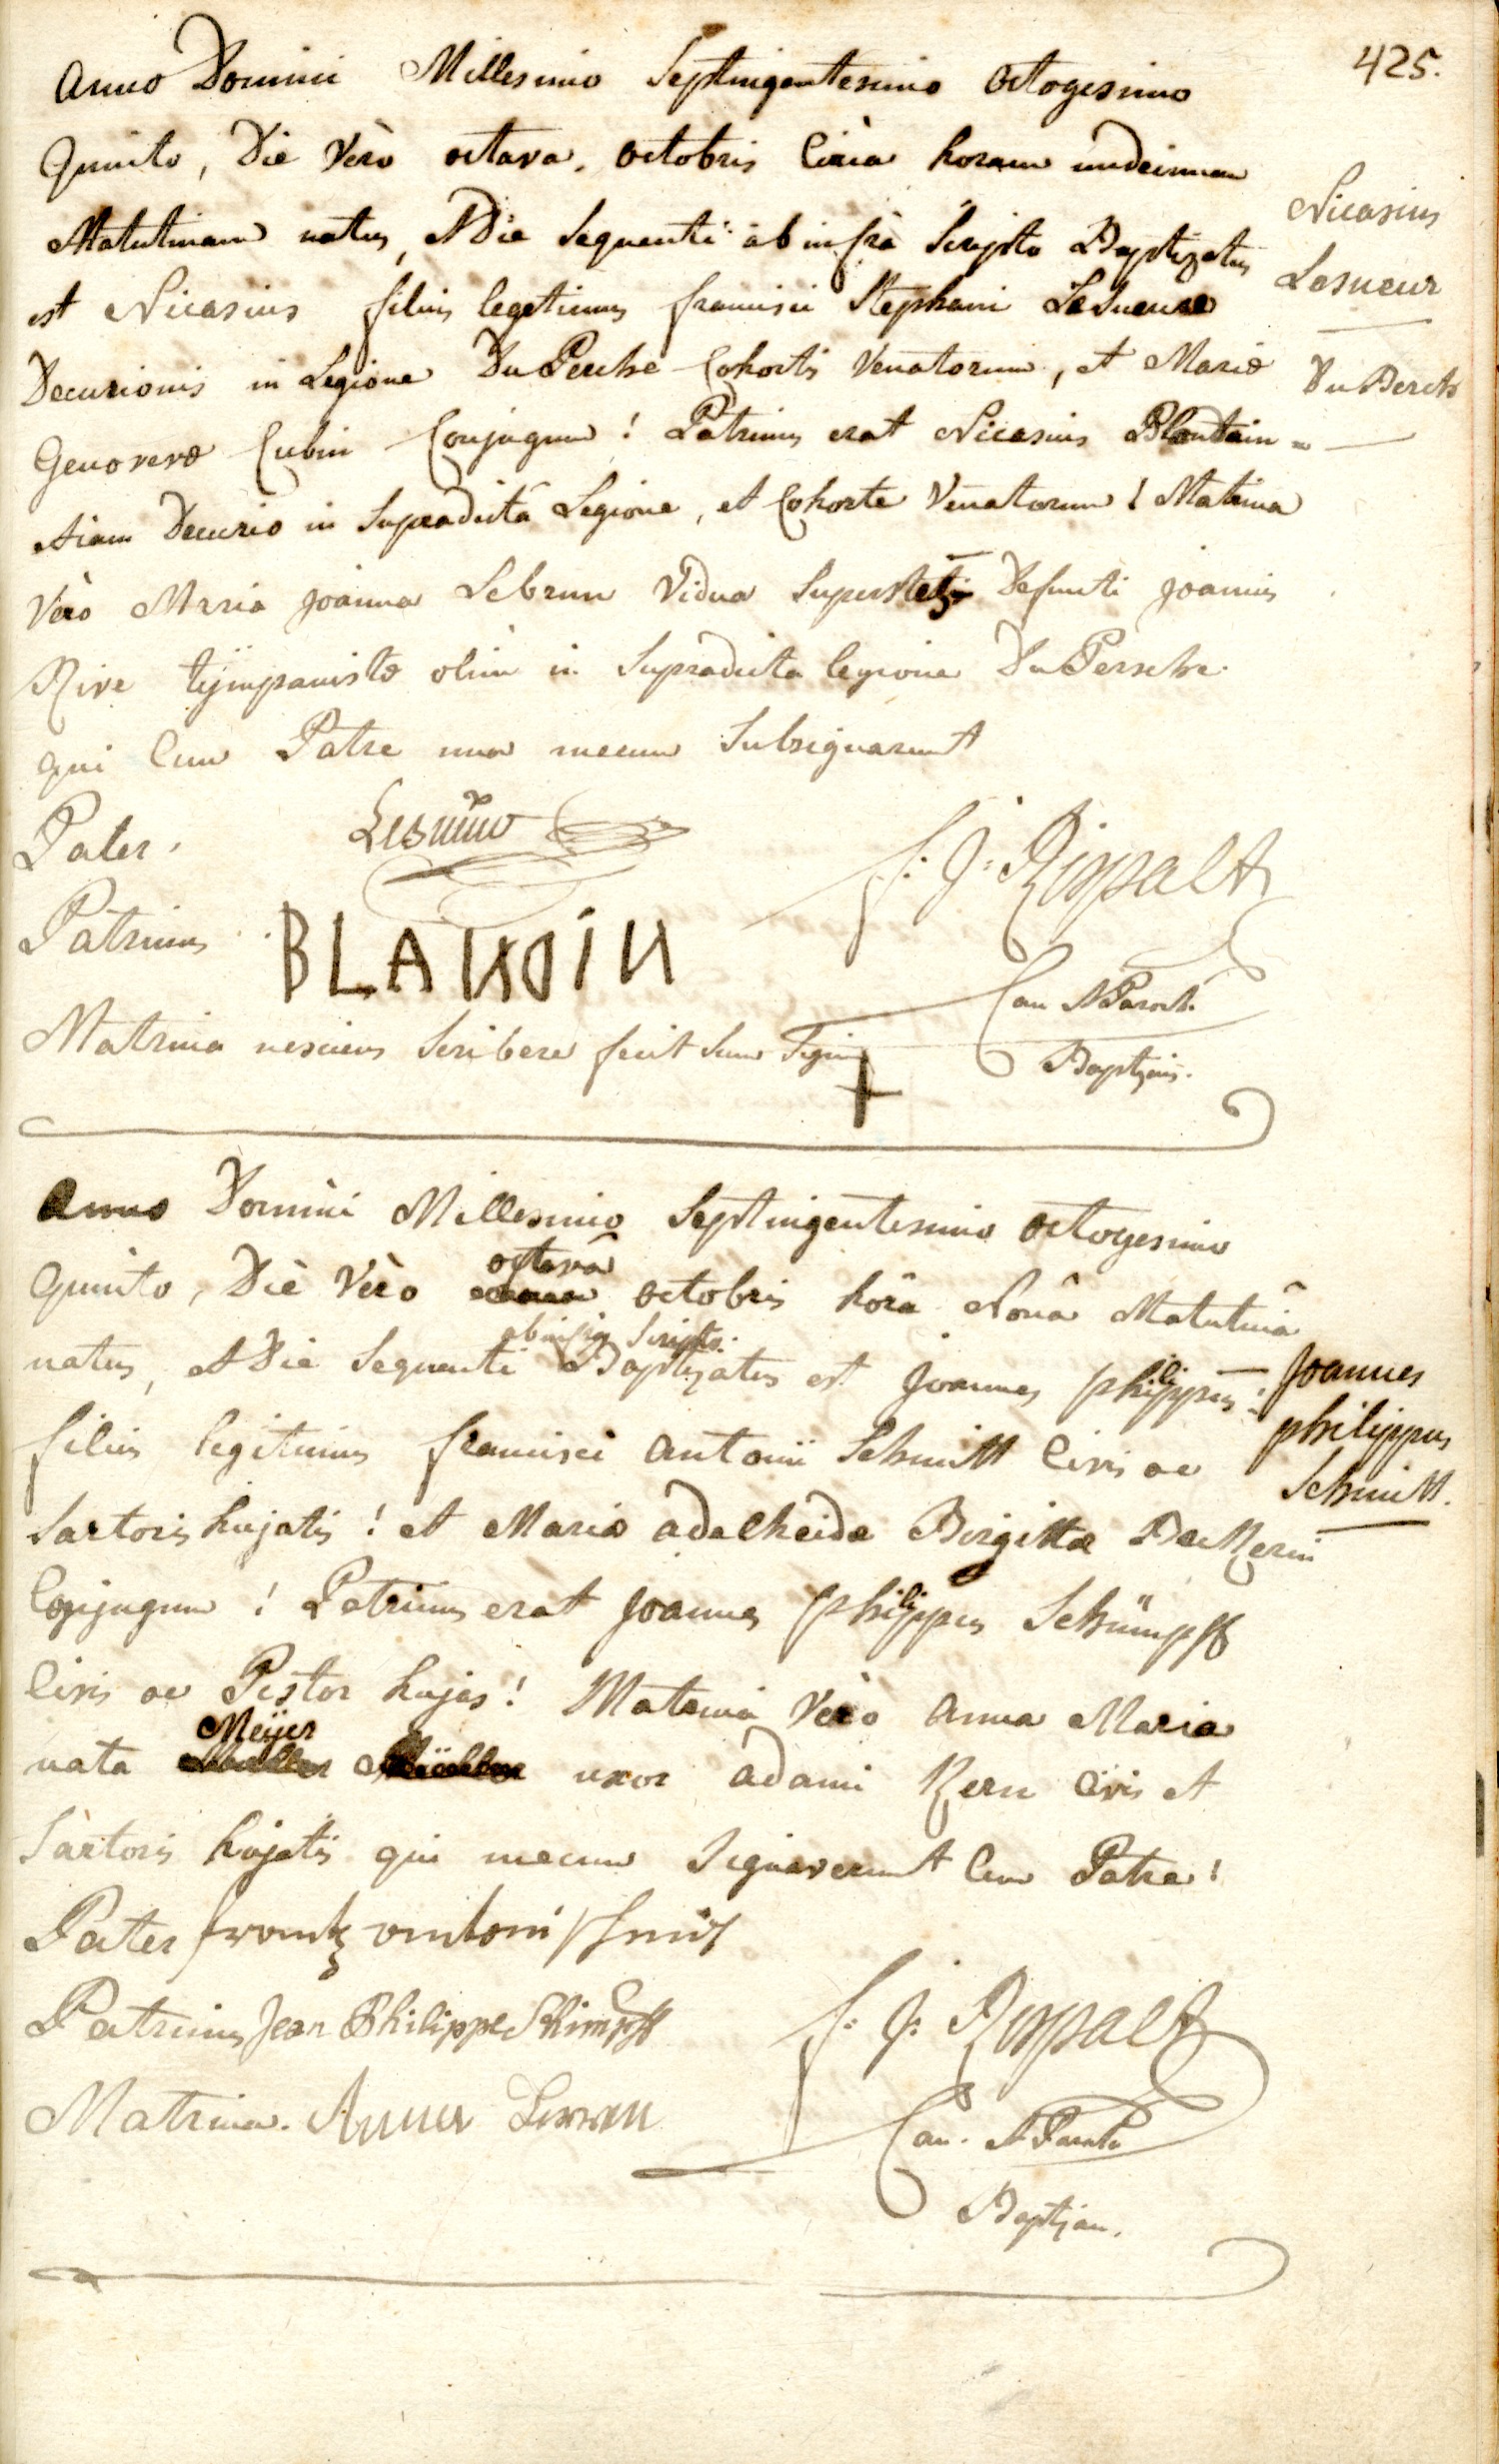 425.
Anno Domini Millesimo Septingentesimo octogesimo
Quinto, Die Vero octava octobris Circa horam undecimam
Matutinam natus, et Die Sequenti ab infra Scripto Baptizatus
est Nicasius filius legetimus francisci Stephani LeSueure
Decurionis in Legione Du Perche Cohortis Venatorum, et Mariæ
Genovevæ Cubin Conjugum! Patrinus erat Nicasius Blandain
etiam Decurio in Supradictâ Legione, et Cohorte Venatorum! Matrina
Vero Maria Joanna Lebrun Vidua Defuncti Joannis
Rive tÿmpanistæ olim in Supradicta legione Du Persche.
qui Cum Patre una mecum Subsignarunt
Nicasius
Lesueur
Du Perch
Pater. Lesueur
Patrinus. BLANDIN
Matrina nesciens Scribere fecit Suum Signum +
f: J: Rispalt
Can et Paroch.
Baptizans.
Anno Domini Millesimo Septingentesimo octogesimo
Quinto, Die Vero octavâ octobris hôrâ Nonâ Matutinâ
natus, et Die Sequenti ab infra Scripto Baptizatus est Joannes philippus
filius legitimus francisci Antonii Schmitt Civis ac
Sartoris hujatis! et Mariæ adelheidæ Birgittæ Beckerin
Conjugum! Patrinus erat Joannes philippus Schümpff
Civis ac Pistor hujas! Matrina Vero Anna Maria
nata Meÿer uxor adami Kern Civis et
Sartoris hujatis qui mecum Signaverunt Cum Patre!
Joannes
philippus
Schmitt.
Pater frantz antoni Schmit
Patrinus Jean Philippe Schimpff
Matrina. Anna
f: J: Rispalt
Can. et Paroch
Baptizan.